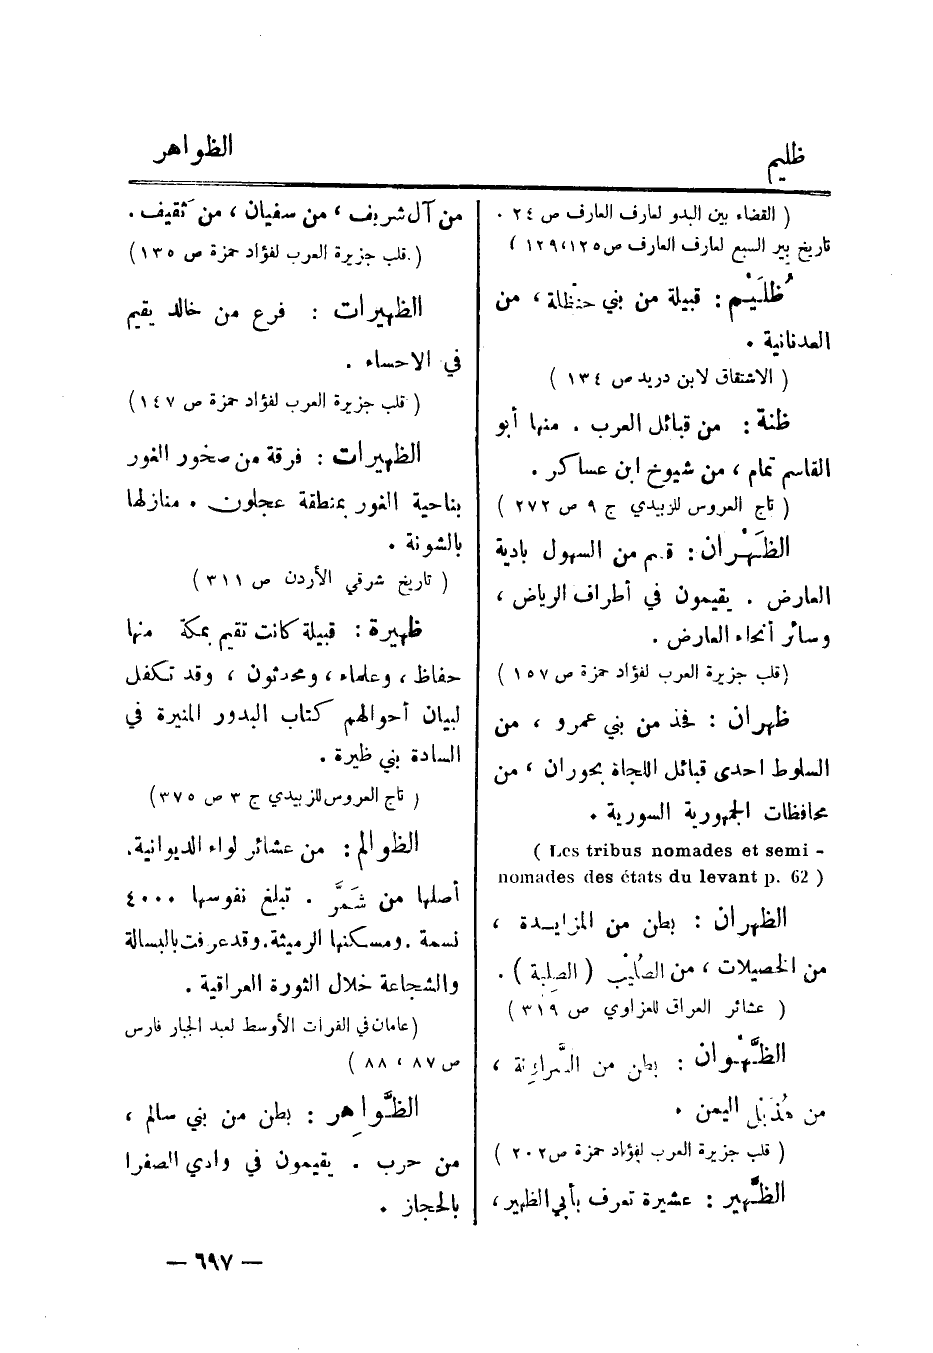 ظليم
الظواهر
( القضاء بين البدو لعارف العارف ص ٢٤ .
تاريخ بير السبع لعارف العارف ص١٢٥،١٢٩ )
ظُلَيْم : قبيلة من بني حنظلة ، من
العدنانية .
( الاشتقاق لابن دريد ص ١٣٤ )
ظنة : من قبائل العرب . منها أبو
القاسم تمام ، من شيوخ ابن عساكر .
( تاج العروس للزبيدي ج ٩ ص ٢٧٢ )
الظَهْران : قسم من السهول بادية
العارض . يقيمون في أطراف الرياض ،
وسائر أنحاء العارض .
(قلب جزيرة العرب لفؤاد حمزة ص ١٥٧ )
ظهران : فخذ من بني عمرو ، من
السلوط احدى قبائل اللجاة بحوران ، من
محافظات الجمهورية السورية .
( Les tribus nomades et semi -
nomades des états du levant p. 62 )
الظهران : بطن من المزايدة ،
من الخصيلات ، من الصُلَيْب ( الصلبة ) .
( عشائر العراق للعزاوي ص ٣١٩ )
الظَّهْوان : بطن من السَّراوِنة ،
من هُذَيْل اليمن .
( قلب جزيرة العرب لفؤاد حمزة ص٢٠٢ )
الظَّهير : عشيرة تعرف بأبي الظهير ،
من آل شريف ، من سفيان ، من ثقيف .
( قلب جزيرة العرب لفؤاد حمزة ص ١٣٥)
الظهيرات : فرع من خالد يقيم
في الاحساء .
( قلب جزيرة العرب لفؤاد حمزة ص ١٤٧)
الظهيرات : فرقة من صخور الغور
بناحية الغور بمنطقة عجلون . منازلها
بالشونة .
( تاريخ شرقي الأردن ص ٣١١ )
ظهيرة : قبيلة كانت تقيم بمكة منها
حفاظ ، وعلماء ، ومحدثون ، وقد تكفل
لبيان أحوالهم كتاب البدور المنيرة في
السادة بني ظيرة .
( تاج العروس للزبيدي ج ٣ ص ٣٧٥)
الظوالم : من عشائر لواء الديوانية.
أصلها من شَمَّر . تبلغ نفوسها ٤٠٠٠
نسمة . ومسكنها الرميثة. وقد عرفت بالبسالة
والشجاعة خلال الثورة العراقية .
(عامان في الفرات الأوسط لعبد الجبار فارس
ص ٨٧ ، ٨٨ )
الظَّواهِر : بطن من بني سالم ،
من حرب . يقيمون في وادي الصفرا
بالحجاز .
— ٦٩٧ —